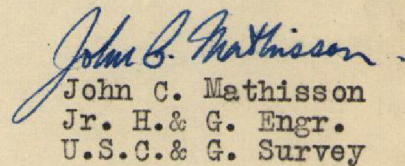 John C. Mathisson
John C. Mathisson
Jr. H.& G. Engr.
U.S.C.& G. Survey